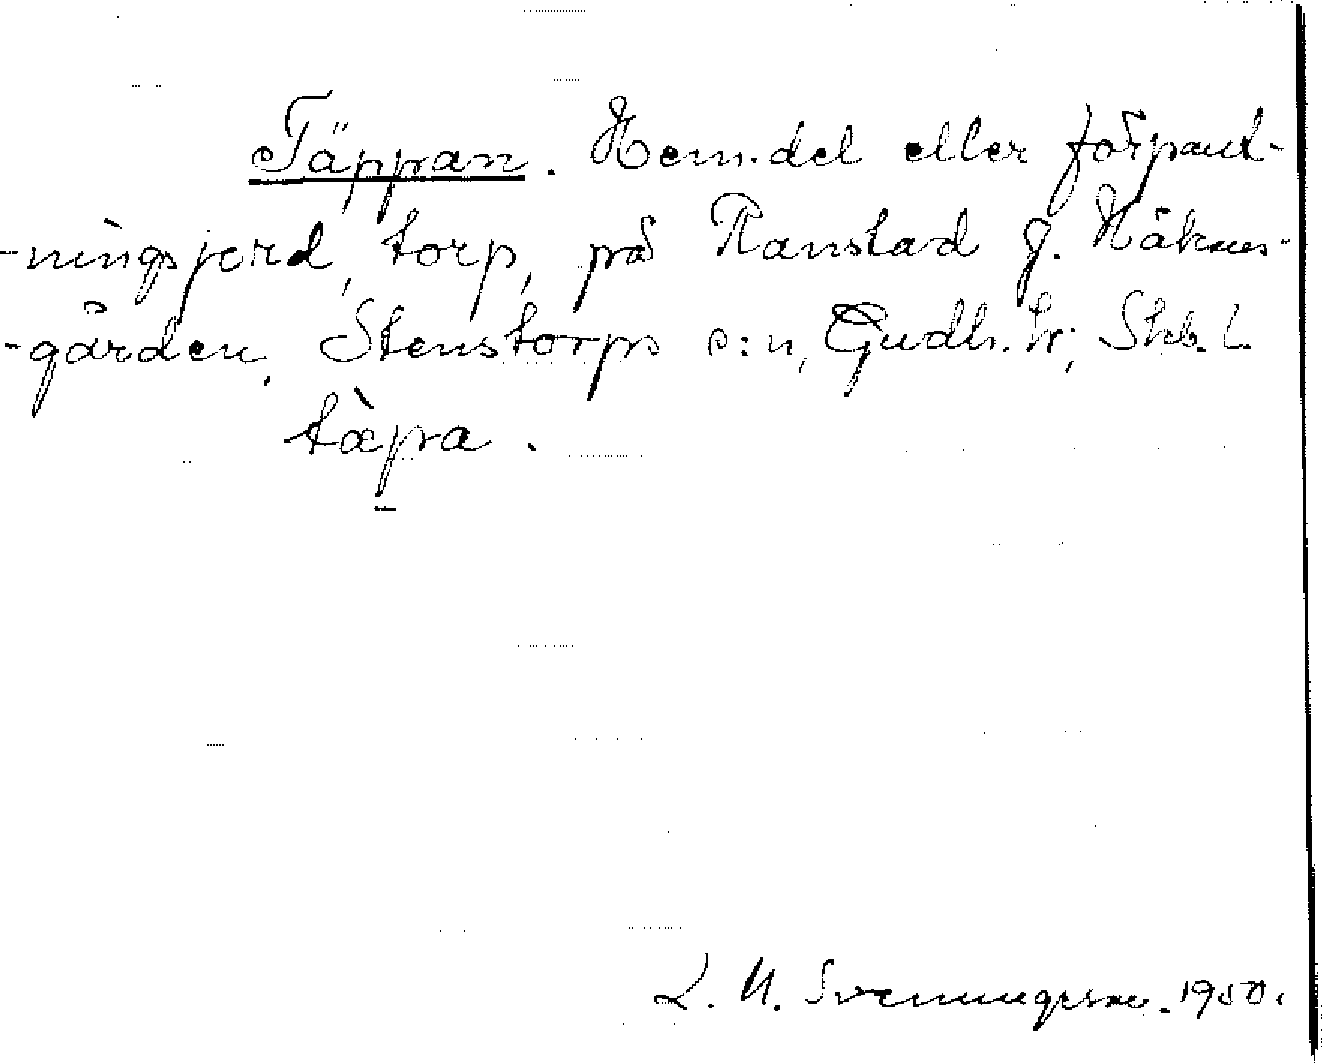 Täppan. Hem.del eller förpant-
-ningsjord, torp, på Ranstad g. Håkans-
-gården, Stenstorps s:n, Gudh. hr; Skb. l.
tæ̀pa.
L. M. Svenungsson. 1950.